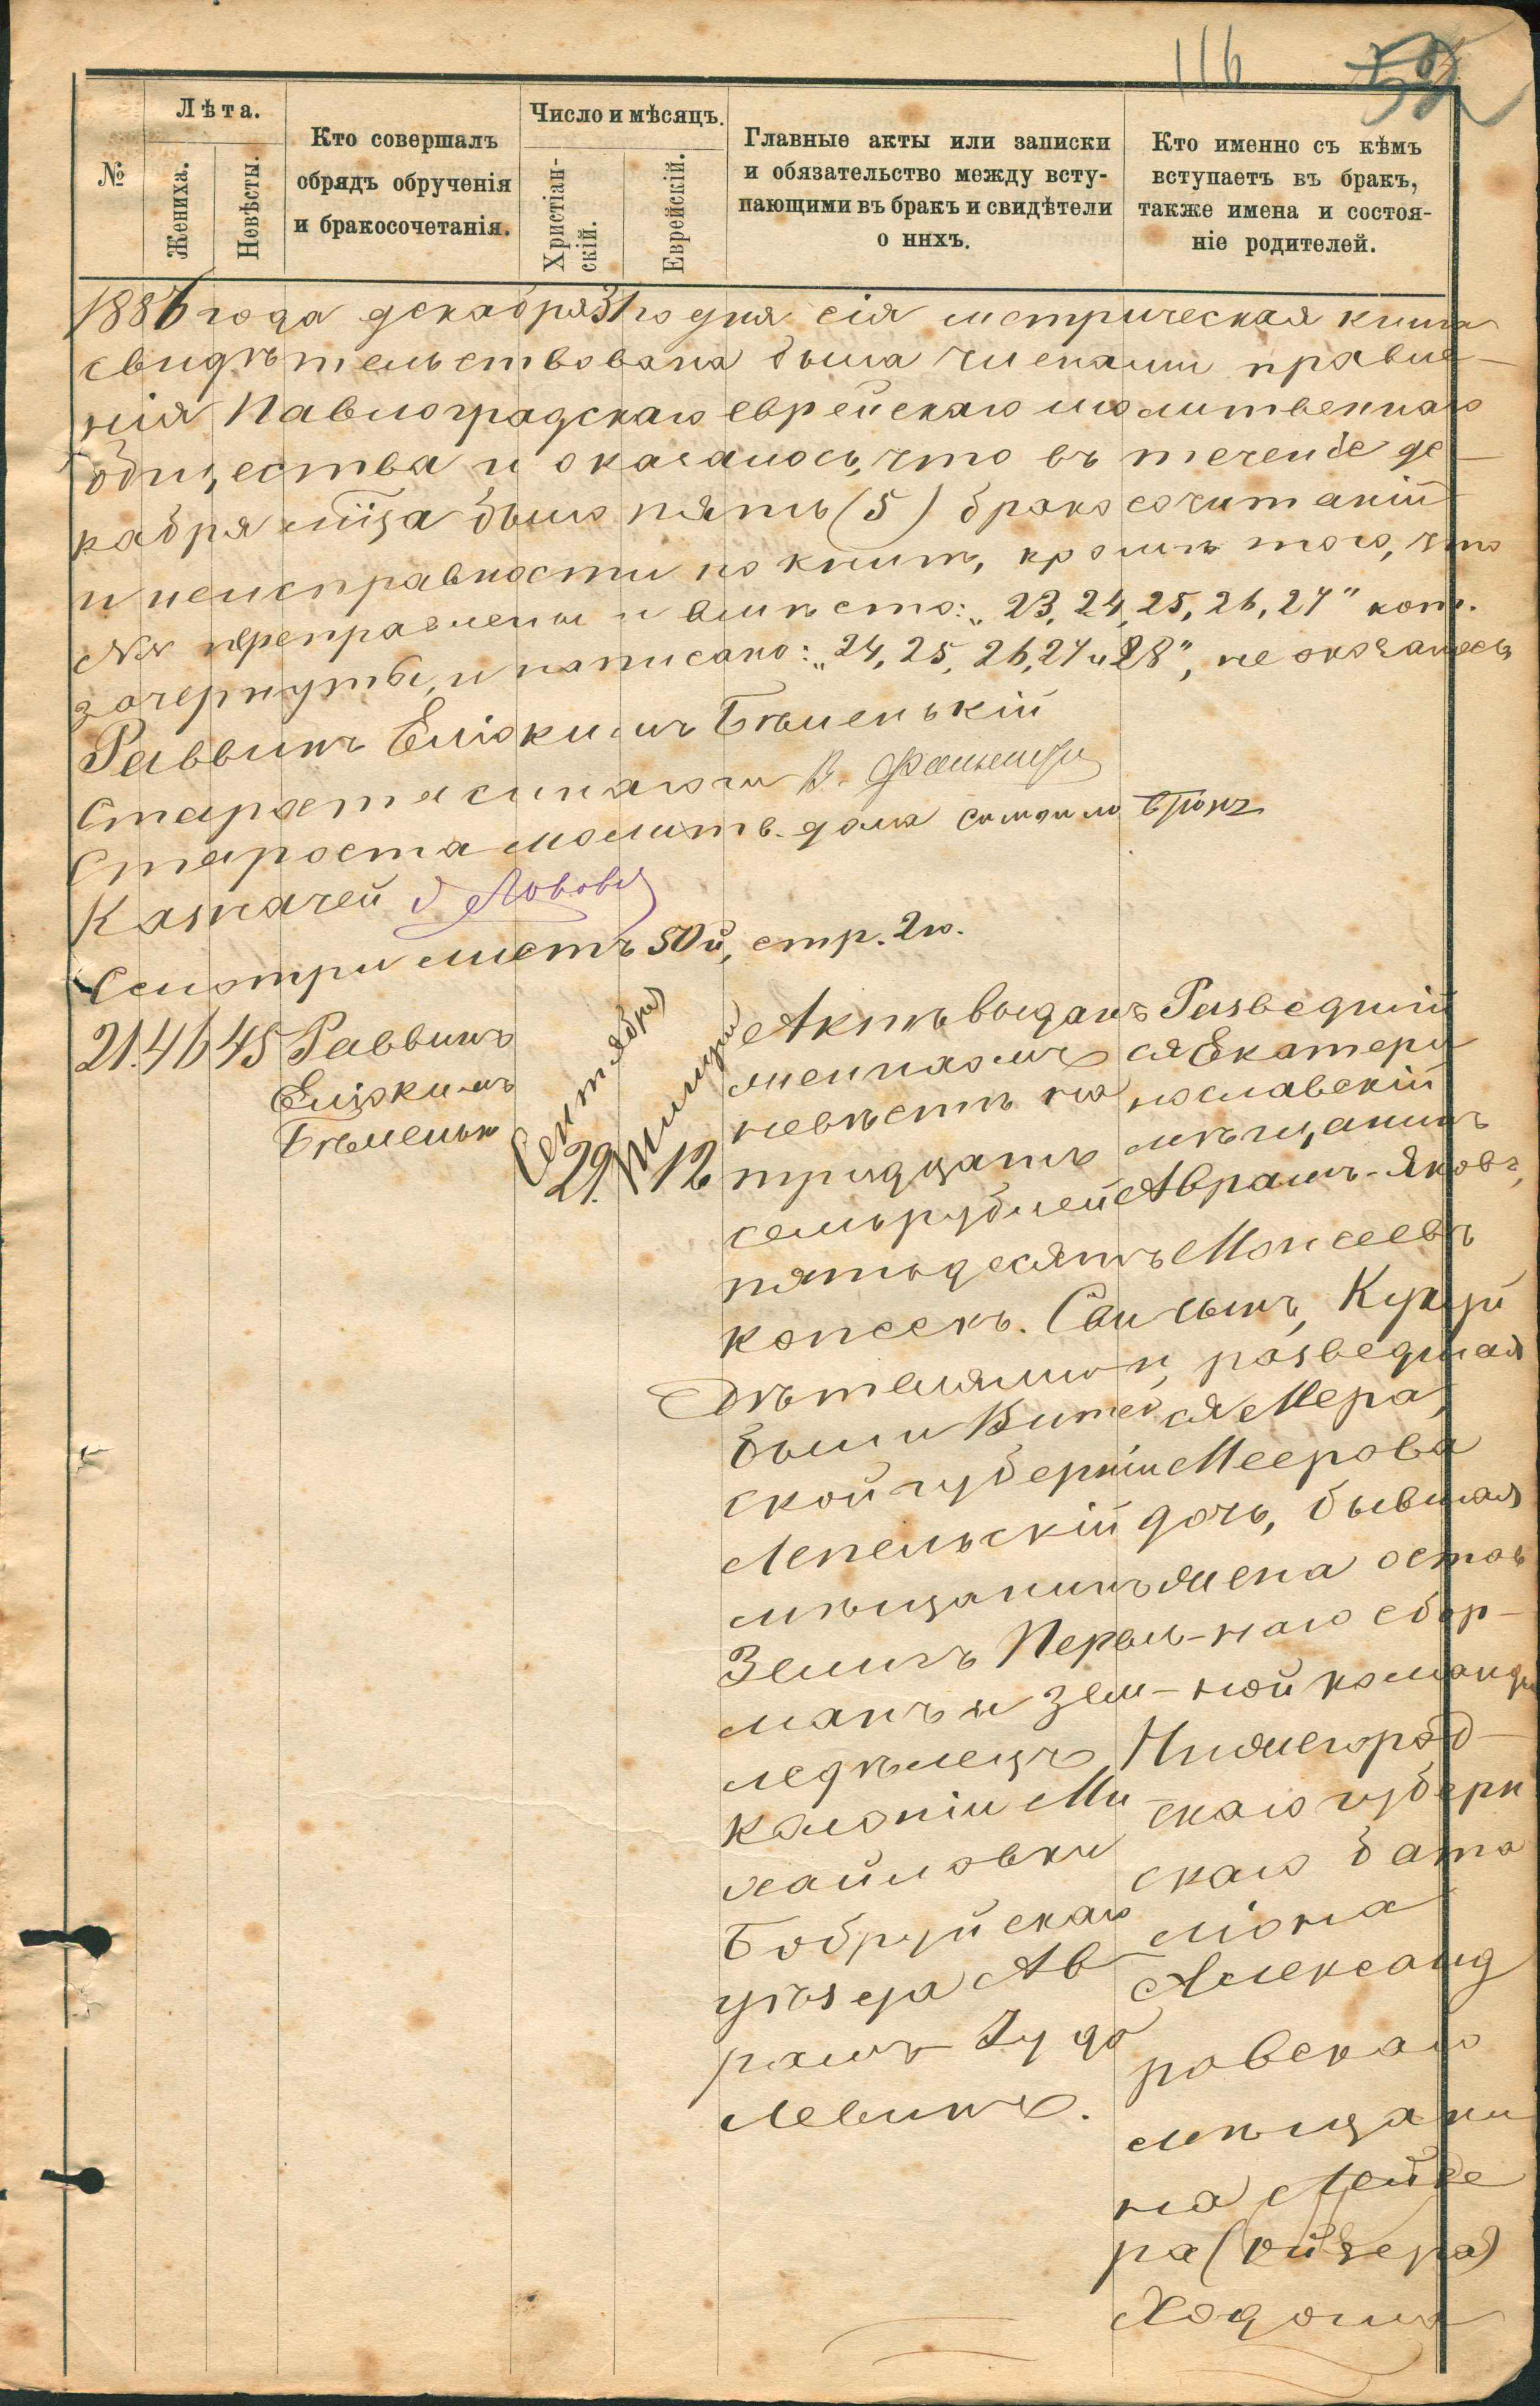 116
52
№
Лѣта.
Жениха.
Невѣсты.
Кто совершалъ
обрядъ обрученія
и бракосочетанія.
Число и мѣсяцъ.
Христіан-
скій.
Еврейскій.
Главные акты или записки
и обязательство между всту-
пающими въ бракъ и свидѣтели
о нихъ.
Кто именно съ кѣмъ
вступаетъ въ бракъ,
также имена и состоя-
ніе родителей.
1886 года декабря 31го дня сія метрическая книга
свидѣтельствована была членами правле-
нія Павлоградскаго еврейскаго молитвеннаго
общества и оказалось, что въ теченіе де-
кабря мѣца было пять (5) бракосочитаній
и неисправности по книгѣ, кромѣ того, что
№№ переправлены и вмѣсто: „23, 24, 25, 26, 27" кот.
зачеркнуты, и написано: „24, 25, 26, 27 и 28", не оказалось
Раввинъ Еліокимъ Бѣленькій
Староста синагоги В.
Староста молитв. дома
Казначей
Смотри листъ 50й, стр. 2ю.
21. 46 45
Раввинъ
Еліокимъ
Бѣленьк
Сентября
29.
Тишри
12
Актъ выданъ
женихомъ
невѣстѣ на
тридцать
семь рублей
пятьдесятъ
копеекъ. Сви
дѣтелями
были Витеб
ской губерніи
Лепельскій
мѣщанинъ
Зеликъ Перель-
манъ и зем-
ледѣлецъ
колоніи Ми
хайловки
Бобруйскаго
уѣзда Ав
рамъ Іуда
Левинъ.
Разведшій
ся Екатери
нославскій
мѣщанинъ
Аврамъ-Яковъ,
Моисеевъ
сынъ, Кукуй
и, разведшая
ся Мера,
Меерова
дочь, бывшая
жена остав
наго сбор-
ной команды
Нижегород-
скаго губерн
скаго бата
ліона
Александ
ровскаго
мѣщани
на Лейзе
ра (Ойзера)
Ходоша